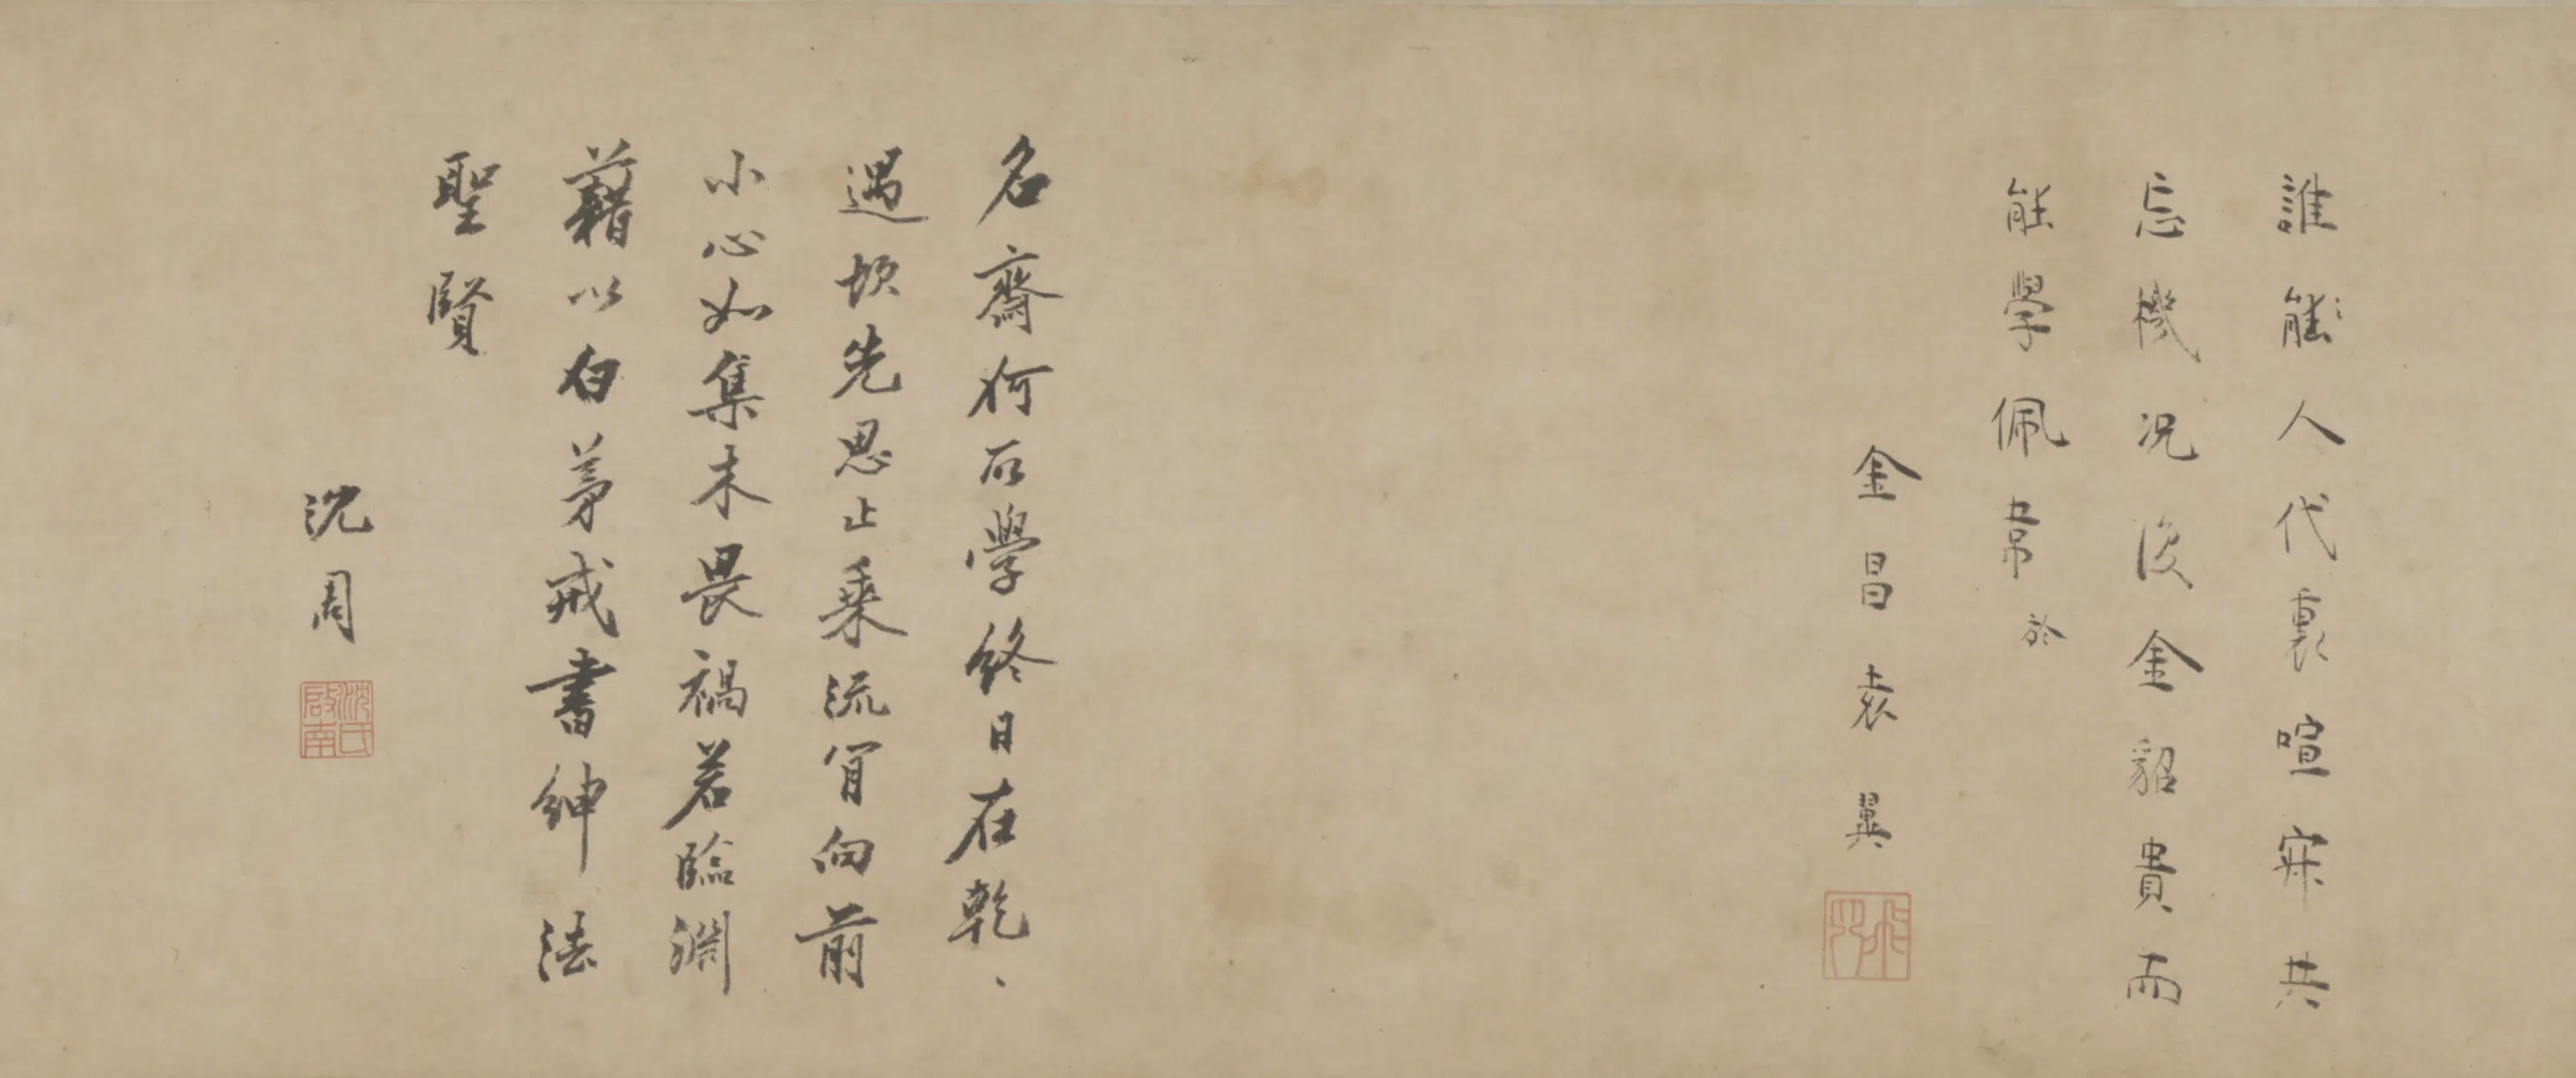 誰能人代裏喧寂共
忘機況復金貂貴而
能學佩韋於
金昌袁翼
名齋何所學終日在乾、
遇坎先思止乘流寧向前
小心如集木畏禍若臨淵
藉以白茅戒書紳法
聖賢
沈周
沈氏啟南